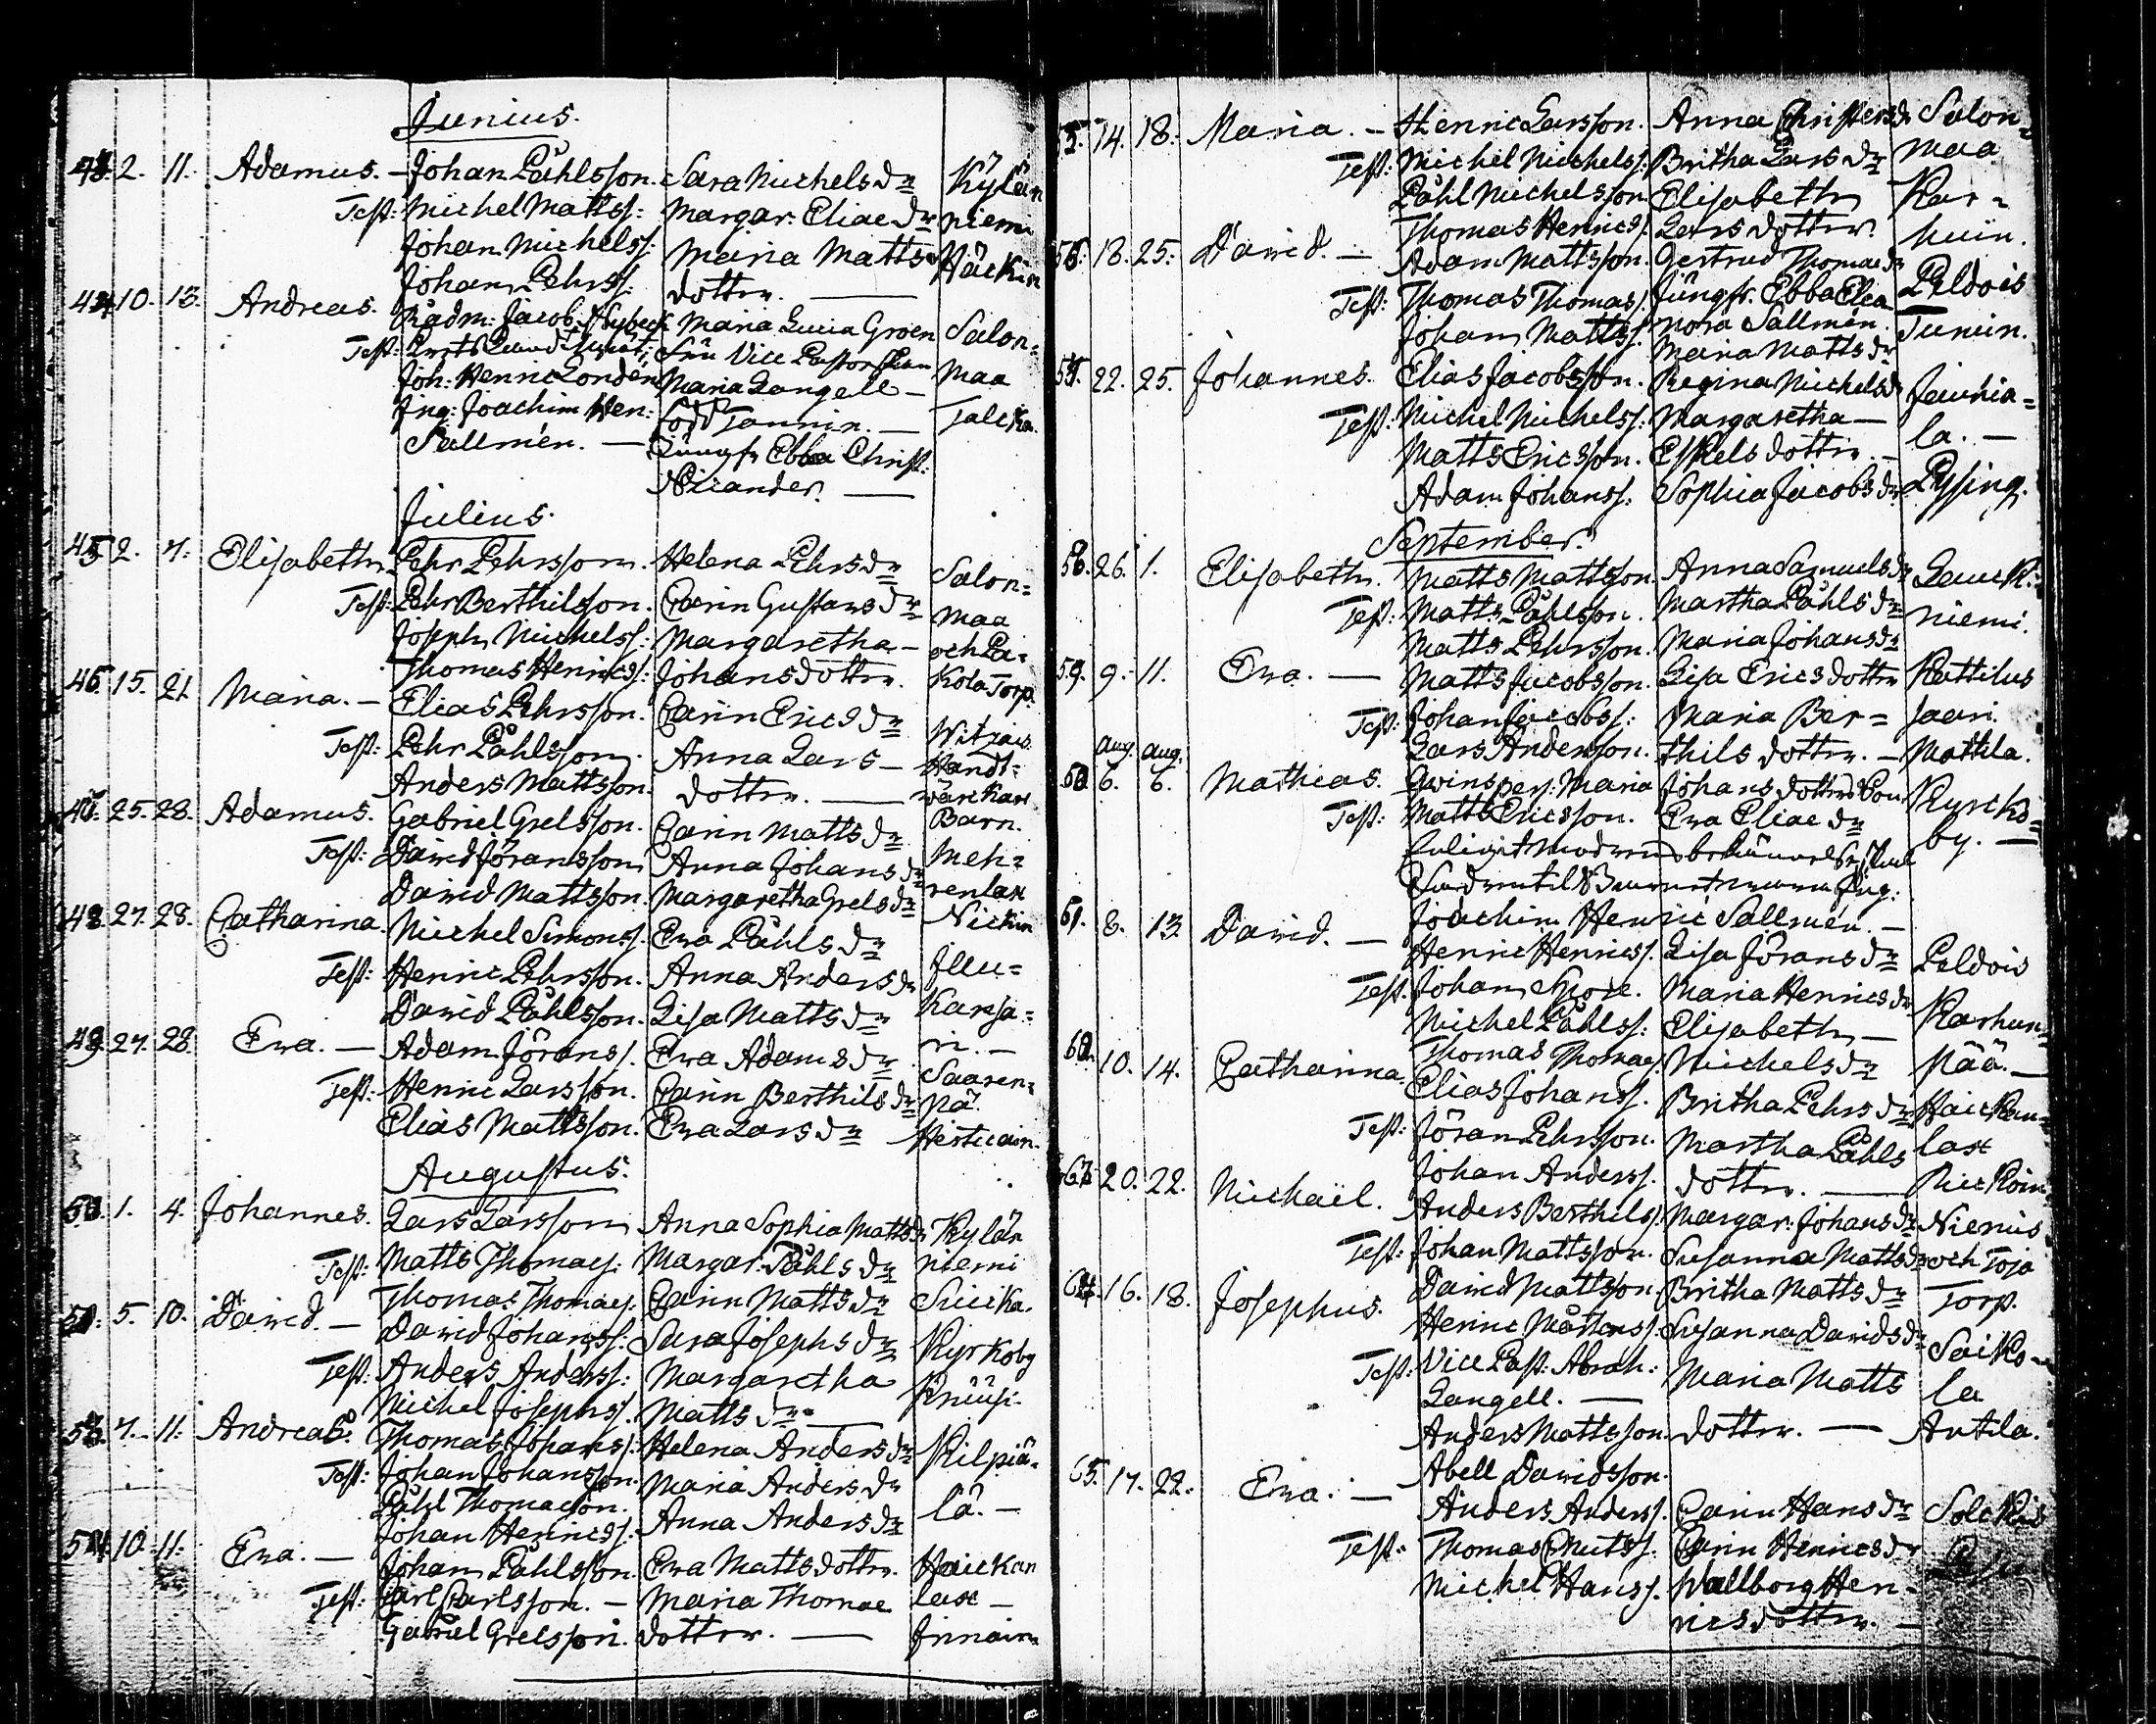 Junius.
43. 2. 11. Adamus. — Johan Påhlsson. Sara Michelsdr Kylän
Test: Michel Mattss: Margar: Eliaedr niemi
Johan Michelss: Maria Matts Häckin
Johan Pehrss: dotter. —
44. 10. 13. Andreas. Rådm: Jacob Maria Lucia Groen Salon=
Test: Fru Vice Pastorskan maa
Joh: Henric Londén Maria Langell — Talcka.
Jng: Joachim Hen: Tannin. —
Sallmén. — Jungfr Ebba Christ:
Nicander. —
Julius.
45. 2. 7. Elisabeth. Pehr Pehrsson. Helena Pehrsdr Salon=
Test: Pehr Berthilsson. Carin Gustavsdr maa
Joseph Michelss: Margaretha — och Pa=
Thomas Henricss: Johansdotter. kola Torp.
46. 15. 21 Maria. — Elias Pehrsson. Carin Ericsdr Witzais
Test: Pehr Påhlsson. Anna Lars — Handt=
Anders Mattsson. dotter. — värckare
25. 28. Adamus. Gabriel Grelsson. Carin Mattsdr Barn.
Test: David Göransson Anna Johansdr Meh=
David Mattsson. Margaretha Grelsdr renlax
48. 27. 28. Catharina. Michel Simonss. Eva Påhlsdr Nickin
Test: Henric Pehrsson. Anna Andersdr Jllu=
David Påhlsson. Lisa Mattsdr Kansa=
49. 27. 28. Eva. — Adam Jöranss. Eva Adamsdr ri. —
Test: Henric Larsson. Carin Berthilsdr Saaren=
Elias Mattsson. Eva Larsdr pä.
Hertuain.
Augustus.
1. 4. Johannes. Lars Larsson Anna Sophia Mattsdr Kylän
Test: Matts Thomass: Margar: Påhlsdr niemi
Thomas Thomass: Carin Mattsdr Suicka.
5. 10. David. — David Johanss: Sara Josephsdr Kyrkoby
Test: Anders Anderss: Margaretha Kruusi.
Michel Josephss. Mattsdr. —
53. 7. 11. Andreas. Thomas Johanss. Helena Andersdr Kilpiä=
Test: Johan Johansson. Maria Andersdr lä. —
Påhl Thomasson. Anna Andersdr
Johan Henricss.
54. 10. 11. Eva. — Johan Påhlsson. Eva Mattsdotter. Haickan
Test: Carl Carlsson. — Maria Thomae lax —
Gabriel Grelsson. dotter. — Jnnain
55. 14. 18. Maria. — Henric Larsson. Anna Christersdr Salon=
Test: Michel Michelss: Britha Larsdr maa
Påhl Michelsson Elisabeth Kar=
Thomas Henricss. Larsdotter. huin.
56. 18. 25. David. — Adam Mattsson. Gertrud Thomaedr Peldois
Test: Thomas Thomass. Jungfr. Ebba Elea Tunin.
Johan Mattss. nora Sallmén.
Maria Mattsdr
57. 22. 25. Johannes. Elias Jacobsson. Regina Michelsdr Jauhia=
Test: Michel Michelss: Margaretha — la. —
Matts Ericsson. Eskelsdotter. — Pysing.
Adam Johanss. Sophia Jacobsdr
September.
58. 26. 1. Elisabeth. Matts Mattsson. Anna Samuelsdr Lauck=
Test: Matts Påhlsson. Martha Påhlsdr niemi.
Matts Pehrsson. Maria Johansdr
59. 9. 11. Eva. — Matts Jacobsson. Lisa Ericsdotter Kattilus
Test: Johan Jacobss: Maria Ber= saari.
Lars Andersson. thilsdotter. — Mattila.
aug. aug.
60. 6. 6. Mathias. Qvinspers: Maria Johansdotters Son Kyrcko=
Test: Matts Ericsson. Eva Eliaedr by. —
Enligit modrens bekännelse skal
Fadren til Barnet wara Jng:
Joachim Henric Sallmén. —
61. 8. 13. David. — Henric Henricss. Lisa Jöransdr Peldois
Test. Johan Spore. Maria Henricsdr Karhun=
Michel Påhlss: Elisabeth — pää. —
Thomas Thomass. Michelsdr
62. 10. 14. Catharina. Elias Johanss. Britha Pehrsdr Haickan=
Test: Jöran Pehrsson. Martha Påhls lax
Johan Anderss. dotter. —
63. 20. 22. Michaël. Anders Berthilss. Margar: Johansdr Niemis
Test: Johan Mattsson. Susanna Mattsdr och Toja
David Mattsson. Britha Mattsdr Torp.
64. 16. 18. Josephus. Henric Mårtenss. Susanna Davidsdr Saiko=
Test: Vice Past: Abrah: Maria Matts la
Langell. — Antila.
Anders Mattsson. dotter. —
Abell Davidsson.
65. 17. 22. Eva. — Anders Anderss. Carin Hansdr
Test: Thomas Cnutss. Carin Henricsdr
Michel Hanss. Wallborg Hen=
ricsdotter. —